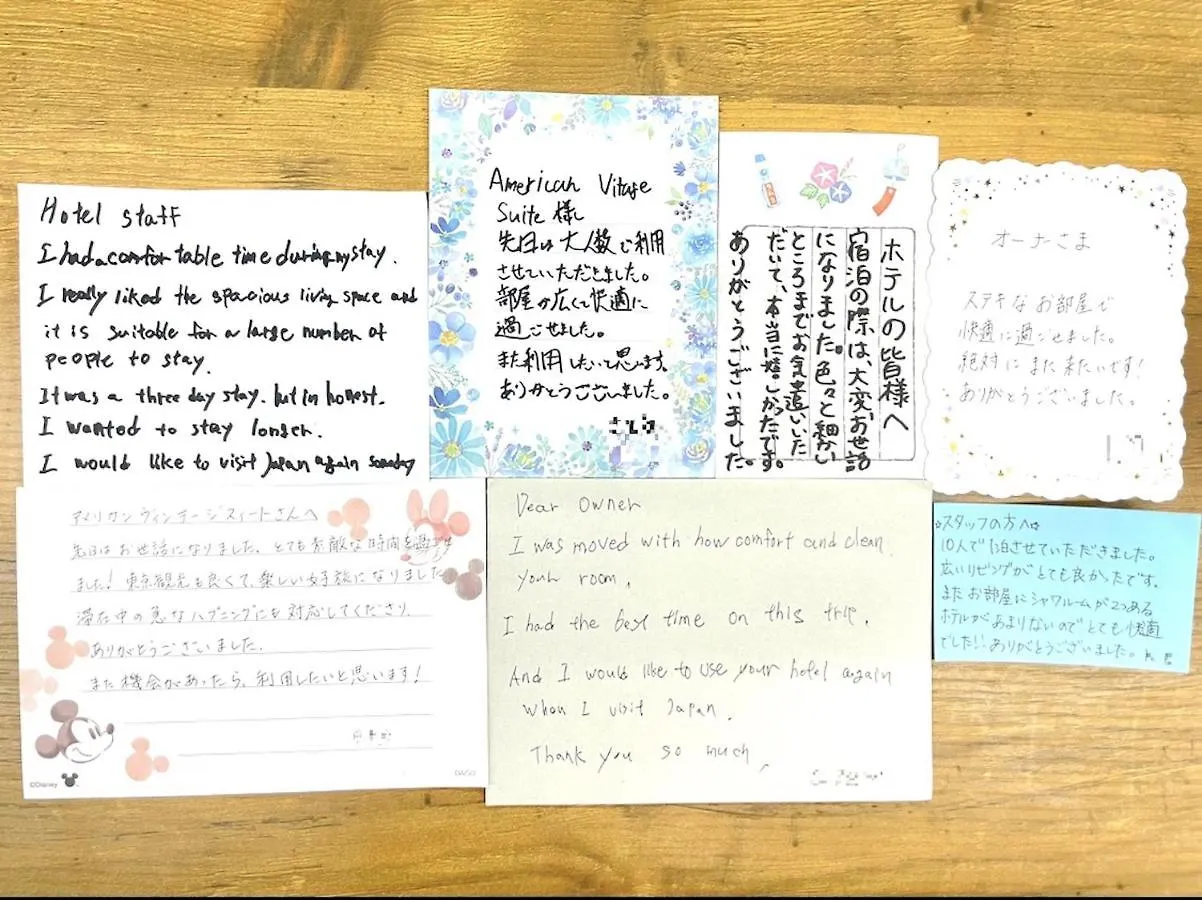 Hotel staff
I had a comfortable time during my stay.
I really liked the spacious living space and
it is suitable for a large number of
people to stay.
It was a three day stay. but in honest.
I wanted to stay longer.
I would like to visit Japan again someday
American Vitage
Suite 様
先日は大人数で利用
させていただきました。
部屋が広くて快適に
過ごせました。
また利用したいと思います。
ありがとうございました。
ホテルの皆様へ
宿泊の際は、大変お世話
になりました。色々と細かい
ところまでお気遣いいた
だいて、本当に嬉しかったです。
ありがとうございました。
オーナーさま
ステキなお部屋で
快適に過ごせました。
絶対にまた来たいです!
ありがとうございました。
アメリカンヴィンテージスイートさんへ
先日はお世話になりました。とても素敵な時間を過ごせ
ました！東京観光も良くて、楽しい女子旅になりました
滞在中の急なハプニングにも対応してくださり、
ありがとうございました。
また機会があったら、利用したいと思います！
©Disney
DAISO
Dear Owner
I was moved with how comfort and clean
your room.
I had the best time on this trip.
And I would like to use your hotel again
when I visit Japan.
Thank you so much,
☆スタッフの方へ☆
10人で1泊させていただきました。
広いリビングがとても良かったです。
またお部屋にシャワルームが2つある
ホテルがあまりないのでとても快適
でした!!ありがとうございました。